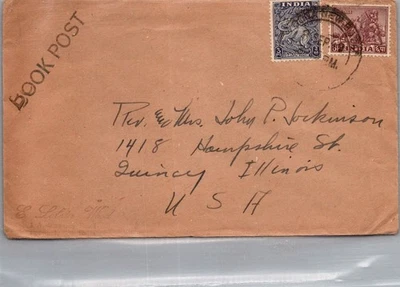 BOOK POST
INDIA
INDIA
SEP
PM.
Rev. & Mrs. John P. Jockinson
1418 Hampshire St.
Quincy Illinois
U S A